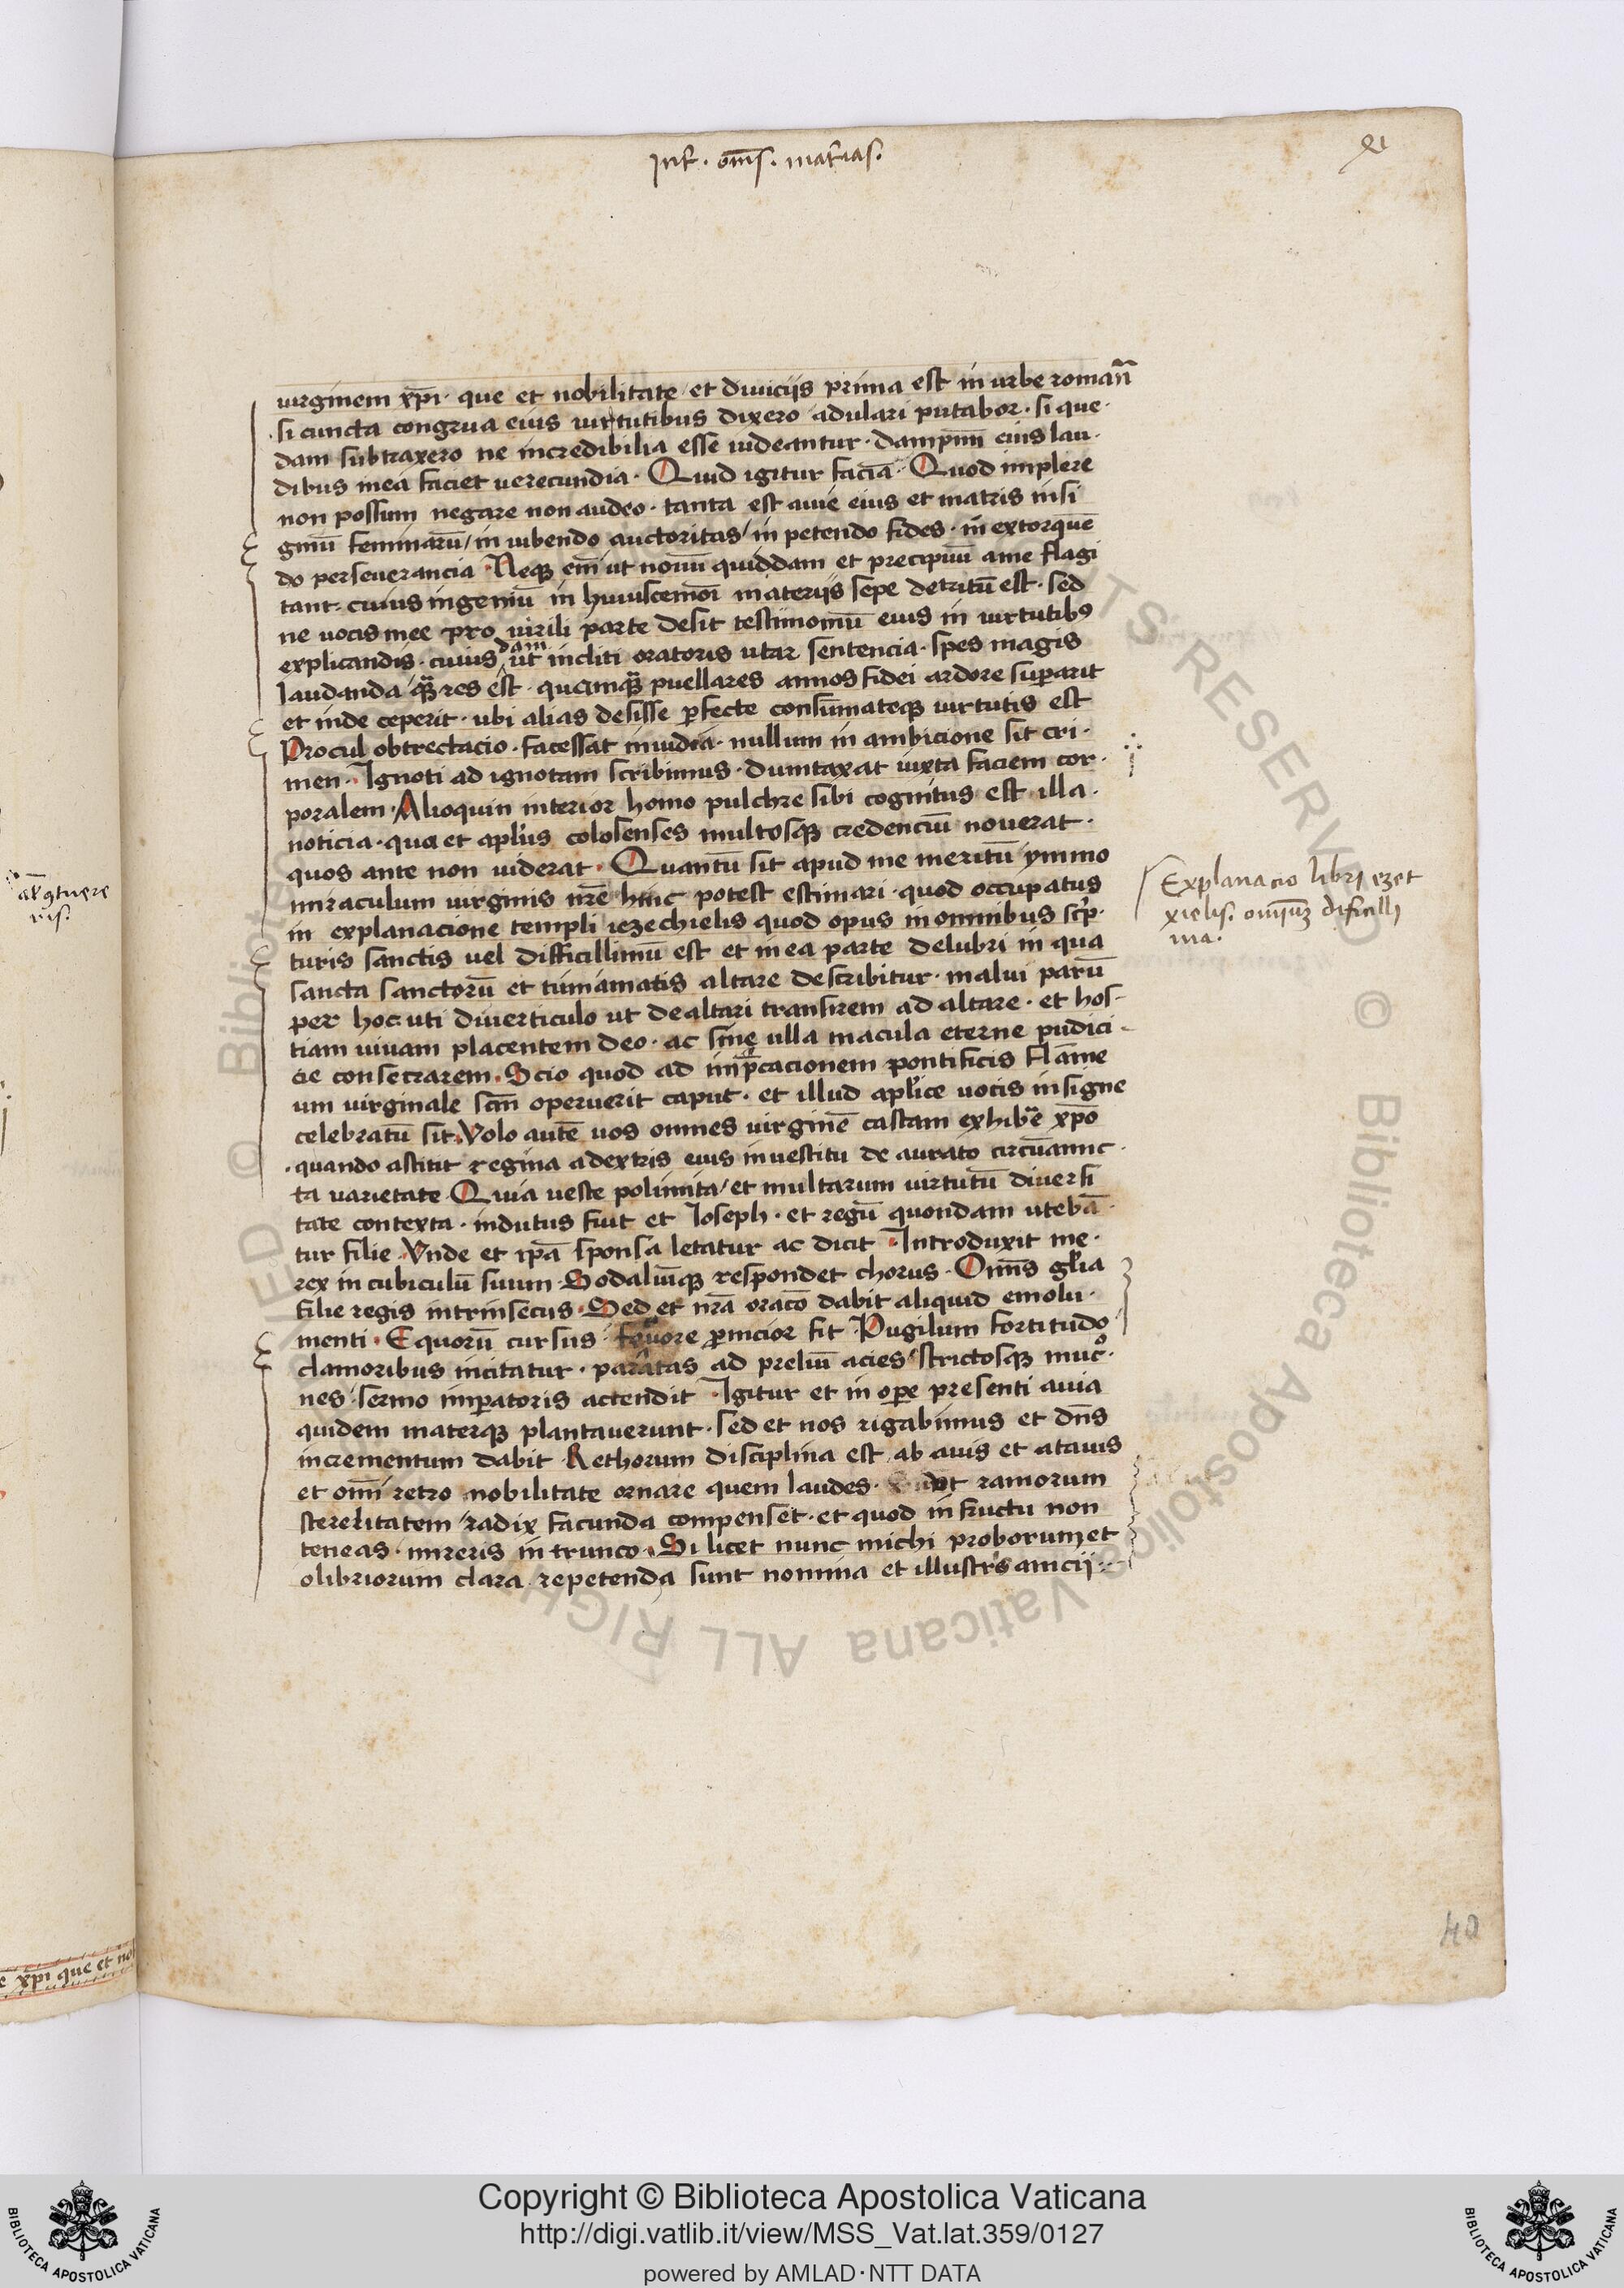 Int̄. om̄s. mat̄ias.
xi
uirginem xp̄i · que et nobilitate et diuiciis prima est in urbe romañ
si cuncta congrua eius uirtutibus dixero adulari putabor · si que·
dam subtraxero ne incredibilia esse uideantur · dampnū eius lau·
dibus mea faciet uerecundia · Quid igitur faciā · Quod implere
non possum negare non audeo · tanta est auie eius et matris insi
gniū feminarū / in iubendo auctoritas / in petendo fides · in extorquē
do perseuerancia · Neqꝫ em̄ ut nouū quiddam et precipuū a me flagi
tant · cuius ingeniū in huiuscemōi materiis sepe detritū est · sed
ne uocis mee pro uirili parte desit testimoniū eius in uirtutibꝰ
explicandis · cuius dam ut incliti oratoris utar sentencia · spes magis
laudanda qꝫ res est · quamqꝫ puellares annos fidei ardore sup̄arit
et inde ceperit · ubi alias desisse p̄fecte consūmateqꝫ uirtutis est
Procul obtrectacio · facessat inuidia · nullum in ambicione sit cri·
men · Ignoti ad ignotam scribimus · dumtaxat iuxta faciem cor·
poralem · Alioquin interior homo pulchre sibi cognitus est illa·
noticia · qua et apl̄us colosenses multosqꝫ credenciū nouerat ·
quos ante non uiderat · Quantū sit apud me meritū ymmo
miraculum uirginis nr̄e hinc potest estimari · quod occupatus
in explanacione templi iezechielis quod opus in omnibus scp̄·
turis sanctis uel difficillimū est et in ea parte delubri in qua
sancta sanctorū et timiamatis altare describitur · malui parū
per hoc uti diuerticulo ut de altari transirem ad altare · et hos-
tiam uiuam placentem deo · ac sine ulla macula eterne pudici-
cie consecrarem · Scio quod ad imp̄cacionem pontificis flāme
um uirginale scm̄ operuerit caput · et illud apl̄ice uocis insigne
celebratū sit · Volo autē uos omnes uirginē castam exhibē xp̄o
· quando astitit regina a dextris eius in uestitu de aurato circūamic·
ta uarietate · Quia ueste polimita / et multarum uirtutū diuersi
tate contexta · indutus fuit et Ioseph · et regū quondam utebā·
tur filie · Vnde et ip̄a sponsa letatur ac dicit · Introduxit me·
rex in cubiculū suum · Sodaliūqꝫ respondet chorus · Om̄is gl̄ia
filie regis intrinsecus · Sed et nr̄a orac̄o dabit aliquid emolu·
menti · Equorū cursus fauore p̄nicior fit · Pugilum fortitudo
clamoribus incitatur · paratas ad preliū acies strictosqꝫ mucͦ·
nes sermo imp̄atoris actendit · Igitur et in op̄e presenti auia
quidem materqꝫ plantauerunt · sed et nos rigabimus et dn̄s
incrementum dabit · Rethorum disciplina est ab auis et atauis
et om̄i retro nobilitate ornare quem laudes · ut ramorum
sterelitatem / radix facunda compenset · et quod in fructu non
teneas · mireris in trunco · Si licet nunc michi proborum et
olibriorum clara repetenda sunt nomina et illustris anicii ·
Explanacio libri ezet
xielis. omniuꝫ dificilli
ma.
40
al̄ ꝯtuere
ris.
ē xp̄i que et no
Copyright © Biblioteca Apostolica Vaticana
http://digi.vatlib.it/view/MSS_Vat.lat.359/0127
powered by AMLAD·NTT DATA
BIBLIOTECA APOSTOLICA VATICANA
BIBLIOTECA APOSTOLICA VATICANA